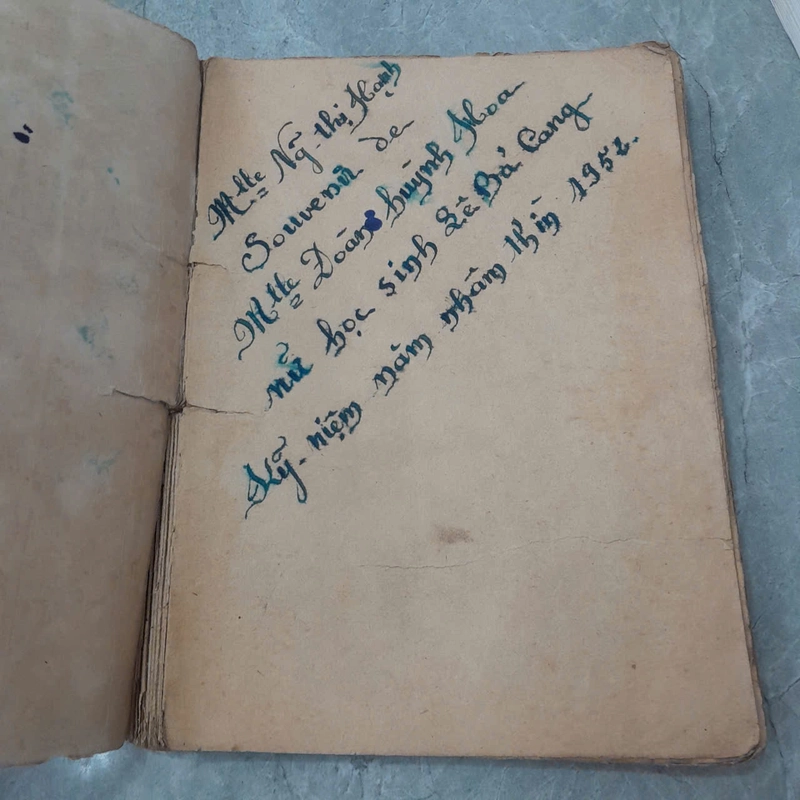 Mlle Ng̃-thị Hạnh
Souvenir de
Mlle Đoàn huỳnh Hoa
nữ học sinh Lê Bá Cang
Kỹ-niệm năm nhâm thìn 1952.